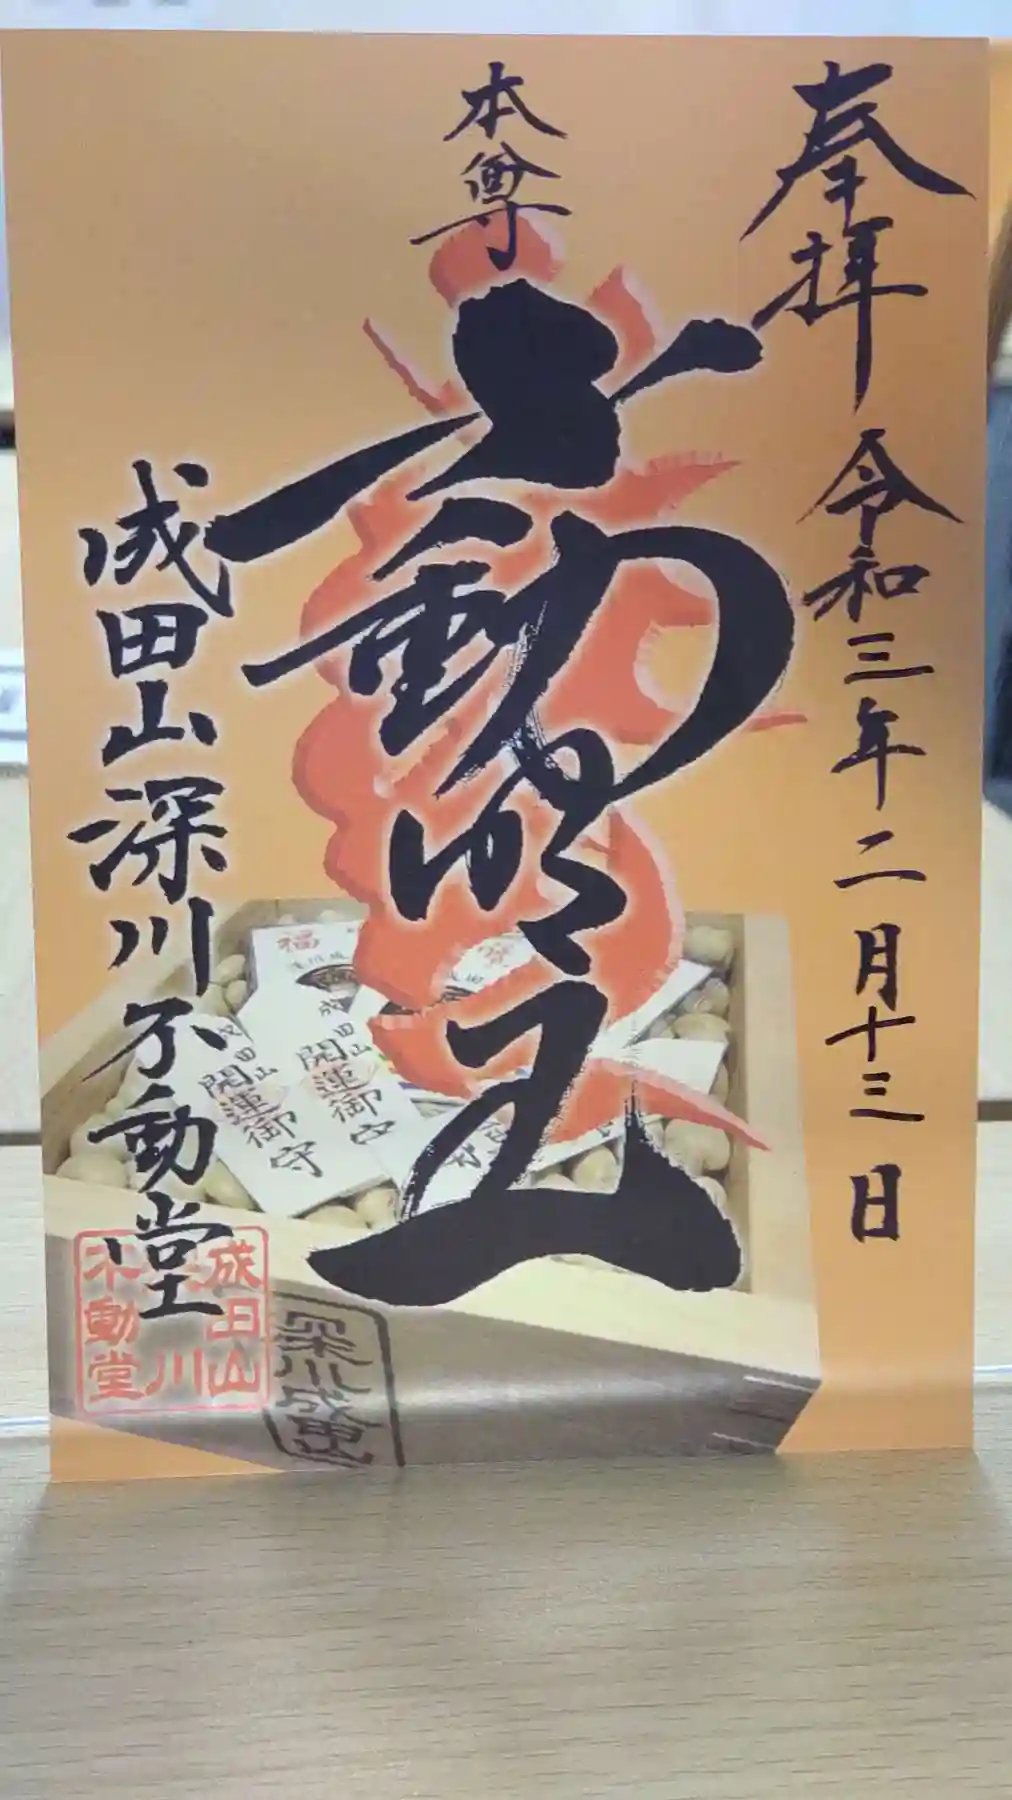 奉拝 令和三年二月十三日
本尊
不動明王
成田山深川不動堂
福
開運御守
成田山
開運御守
成田山
成田山
深川
不動堂
深川成田山